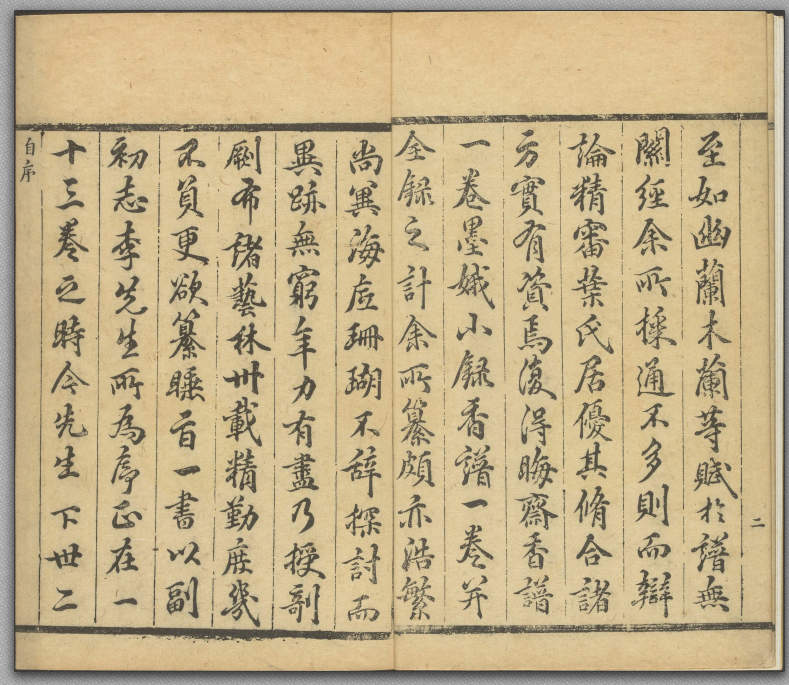 至如幽蘭木蘭等賦於譜無
關經余所採通不多則而辯
論精審葉氏居優其脩合諸
方實有資焉復得晦齋香譜
一卷墨娥小録香譜一卷并
全録之計余所纂頗亦浩繁
尚冀海底珊瑚不辞探討而
異跡無窮年力有盡乃授剞
劂布諸藝林卅載精勤庶幾
不負更欲纂睡旨一書以副
初志李先生所為序正在一
十三卷之時今先生下世二
自序
二